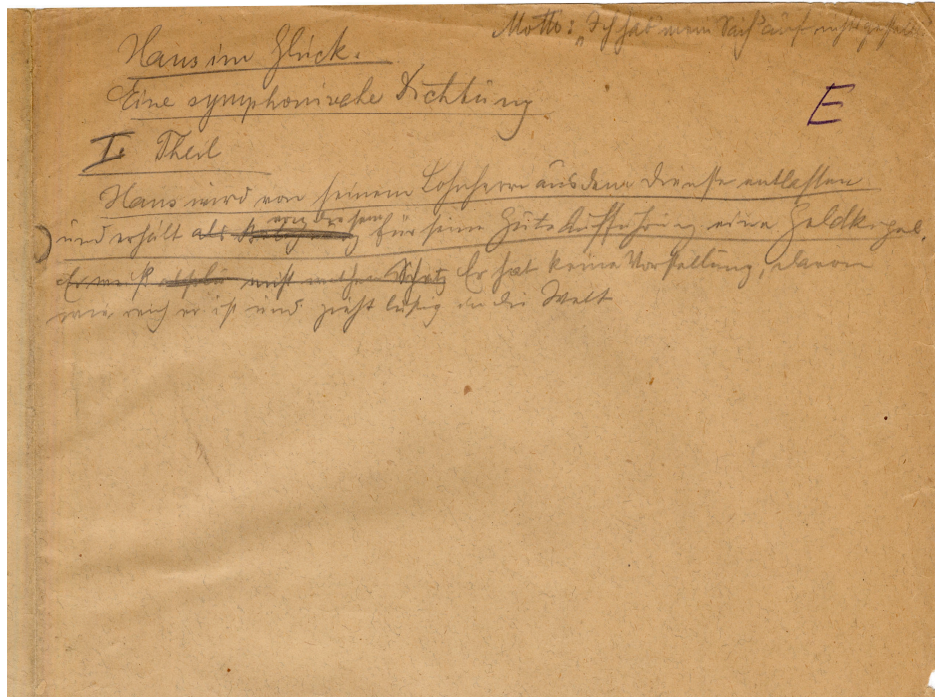 Motto: „Ich hab mein Sach auf nichts gestellt
Hans im Glück.
Eine symphonische Dichtung.
E
I. Theil
Hans wird von seinem Lohnherrn aus dem Dienste entlassen
und erhält als für seine gute Aufführung eine Geldkugel.
Er weiß nicht Schatz Er hat keine Vorstellung, davon
wie reich er ist und zieht lustig in die Welt